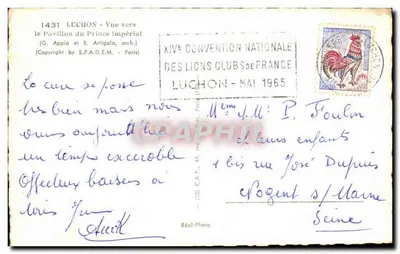 1431 LUCHON - Vue vers
le Pavillon du Prince Impérial
(G. Appia et B. Artigala, arch.)
(Copyright by S.P.A.D.E.M. - Paris)
XIVe CONVENTION NATIONALE
DES LIONS CLUBS DE FRANCE
LUCHON - MAI 1965
La cure se passe
très bien mais nous
avons aujourd'hui
un temps exécrable
Affectueux baisers à
tous
Mme & Mr P. Foulon
et leurs enfants
1 bis rue José Dupuis
Nogent s/ Marne
Seine
Réal-Photo
CPHPHTM